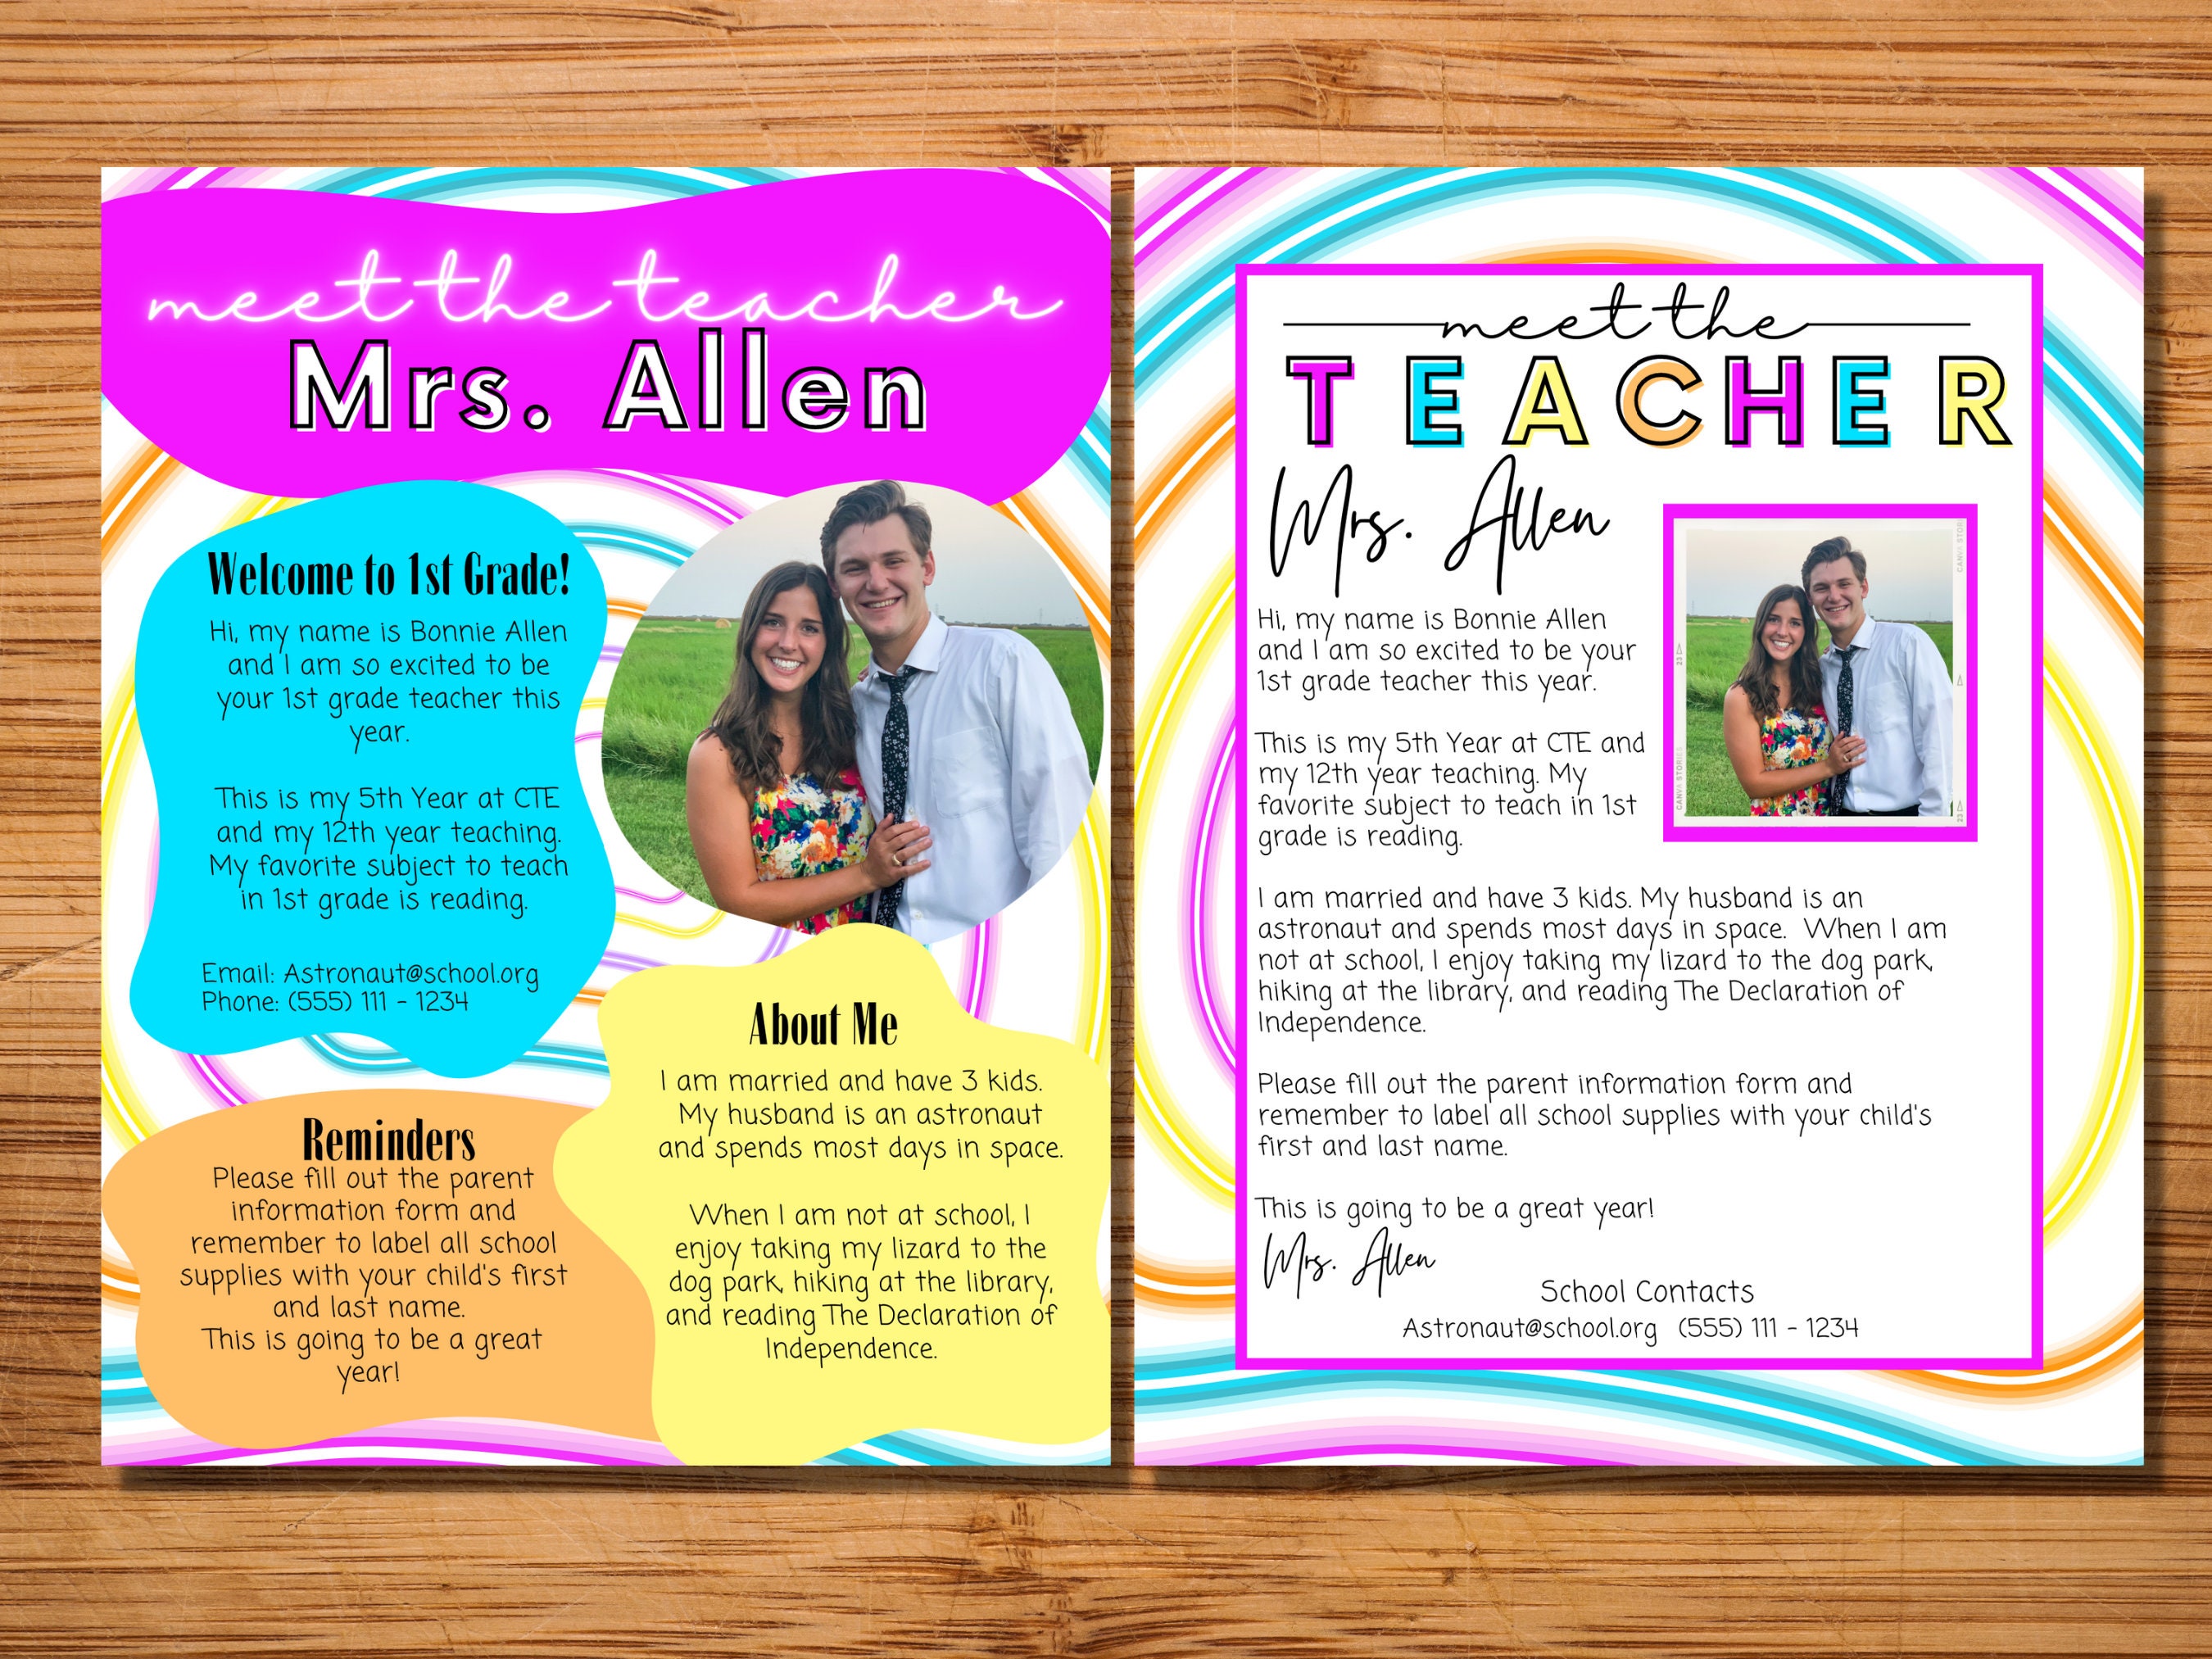 meet the teacher
Mrs. Allen
Welcome to 1st Grade!
Hi, my name is Bonnie Allen
and I am so excited to be
your 1st grade teacher this
year.
This is my 5th Year at CTE
and my 12th year teaching.
My favorite subject to teach
in 1st grade is reading.
Email: Astronaut@school.org
Phone: (555) 111 - 1234
About Me
I am married and have 3 kids.
My husband is an astronaut
and spends most days in space.
When I am not at school, I
enjoy taking my lizard to the
dog park, hiking at the library,
and reading The Declaration of
Independence.
Reminders
Please fill out the parent
information form and
remember to label all school
supplies with your child's first
and last name.
This is going to be a great
year!
meet the
TEACHER
Mrs. Allen
Hi, my name is Bonnie Allen
and I am so excited to be your
1st grade teacher this year.
This is my 5th Year at CTE and
my 12th year teaching. My
favorite subject to teach in 1st
grade is reading.
CANVA STORIES
23
23
I am married and have 3 kids. My husband is an
astronaut and spends most days in space. When I am
not at school, I enjoy taking my lizard to the dog park,
hiking at the library, and reading The Declaration of
Independence.
Please fill out the parent information form and
remember to label all school supplies with your child's
first and last name.
This is going to be a great year!
Mrs. Allen
School Contacts
Astronaut@school.org (555) 111 - 1234